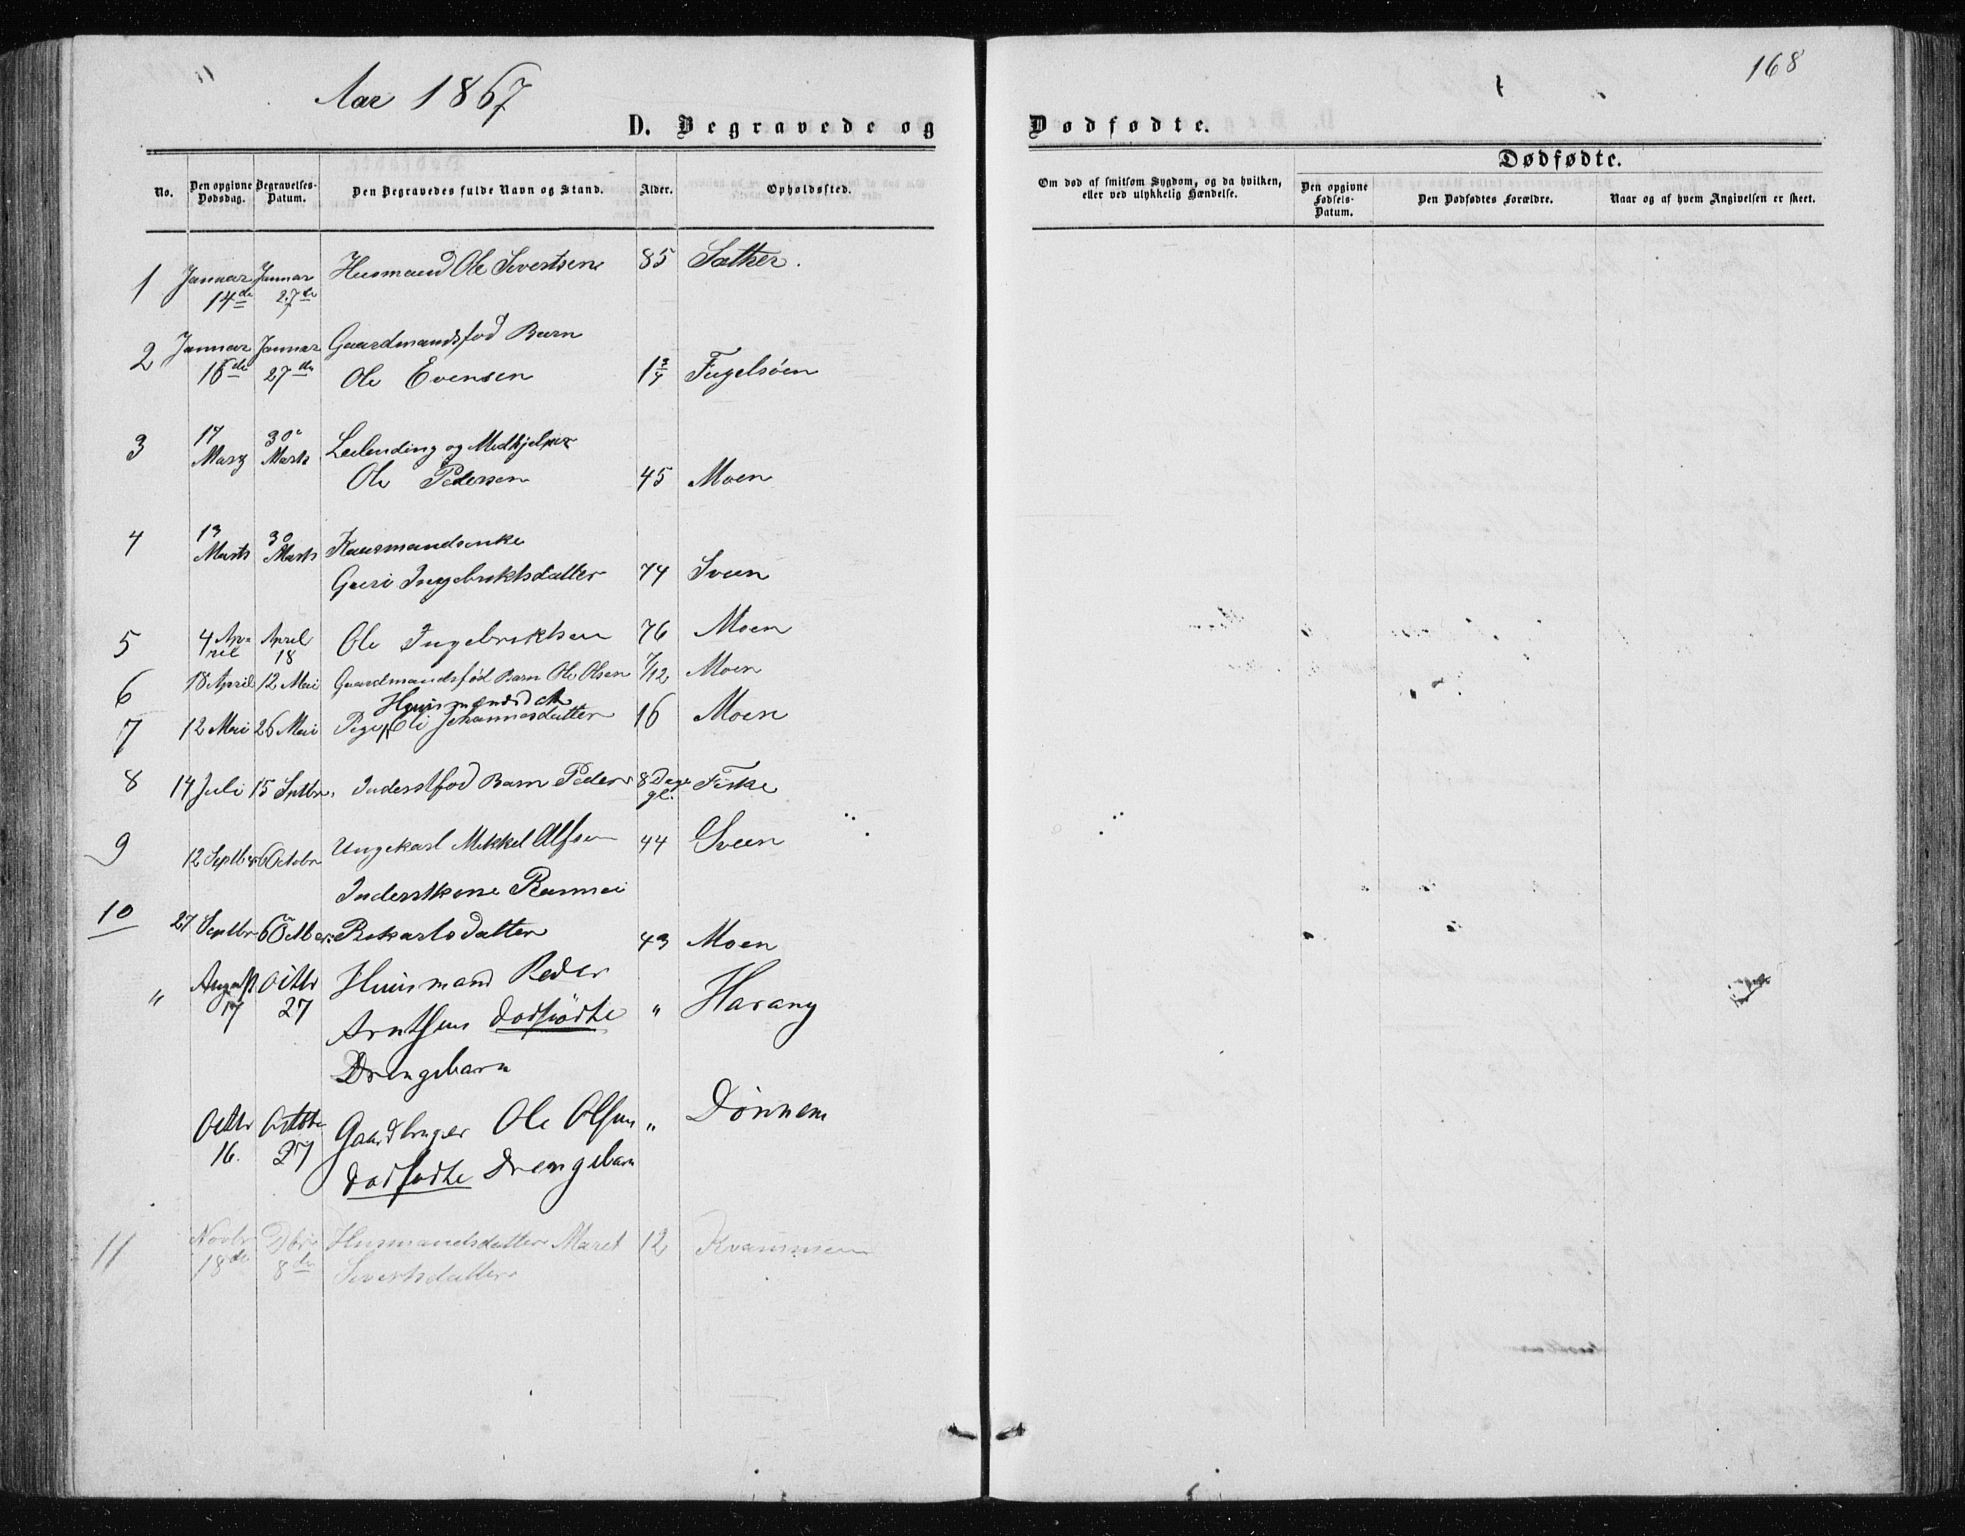 168
Aar 1867
D. Begravede og Dødfødte.
Dødfødte.
No.
Den opgivne Dødsdag.
Begravelses-Datum.
Den Begravedes fulde Navn og Stand.
Alder.
Opholdssted.
Om død af smitsom Sygdom, og da hvilken, eller ved ulykkelig Hændelse.
Den opgivne Fødsels-Datum.
Den Dødfødtes Forældre.
Naar og af hvem Angivelsen er skeet.
1 Januar 14de Januar 27de Husmand Ole Sivertsen 85 Sæther.
2 Januar 16de Januar 27de Gaardmandsfød Barn
Ole Evensen 1 3/4 Fugelsøen
3 17 Marz 30 Marts Leilending og Medhjelper
Ole Pedersen 45 Moen
4 13 Marts 30 Marts Kaarmandsenke
Guri Ingebriktsdatter 74 Sveen
5 4 April April 18 Ole Ingebriktsen 76 Moen
6 18 April 12 Mai Gaardmandsfød Barn Ole Olsen 7/12 Moen
Huusmandsdatr
7 12 Mai 26 Mai Pige Eli Johannesdatter 16 Moen
8 14 Juli 15 Septbr. Inderstfød Barn Peder 8 Dage gl. Fiske
9 12 Septbr 6 Octobr Ungekarl Mikkel Alfsen 44 Sveen
Inderstkone
10 27 Septbr 6 Octbr. 43 Moen
" August 17 Octbr 27 Huusmand Peder
Arntsens dødfødte " Harang
Drengebarn
Octbr 16. Octbr 27 Gaardbruger Ole Olsens " Dønnem
dødfødte Drengebarn
11 Novbr 18de Dbr 8de Husmandsdatter Maret 12 Kvammen
Sivertsdatter